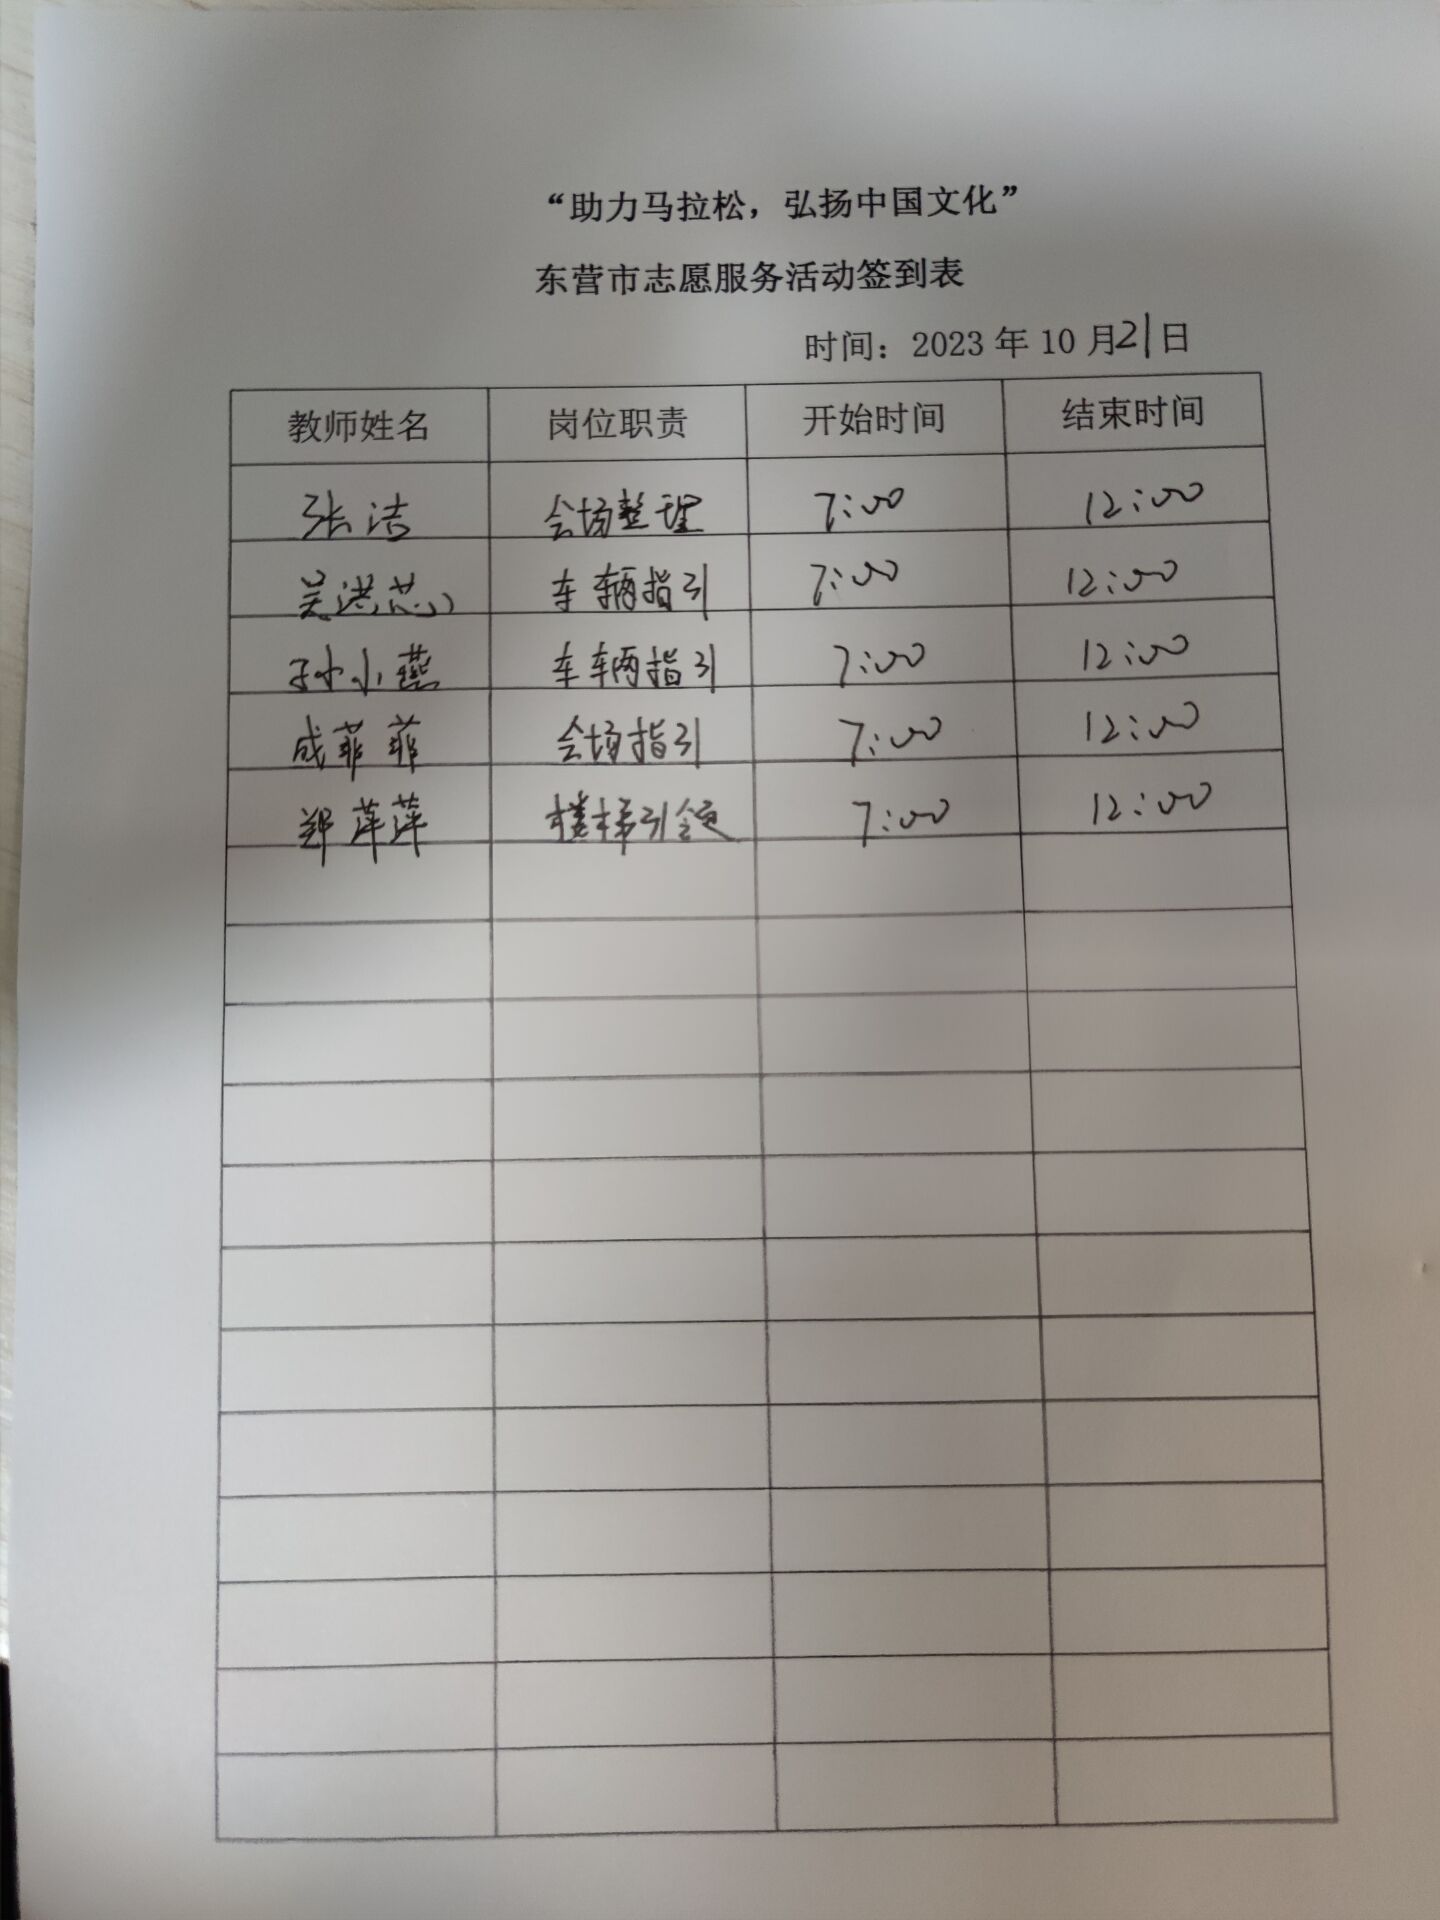 “助力马拉松，弘扬中国文化”
东营市志愿服务活动签到表
时间：2023 年 10 月21日
教师姓名 岗位职责 开始时间 结束时间
张洁 会场整理 7:00 12:00
吴洪芯 车辆指引 7:00 12:00
孙小燕 车辆指引 7:00 12:00
成菲菲 会场指引 7:00 12:00
郑萍萍 楼梯引领 7:00 12:00